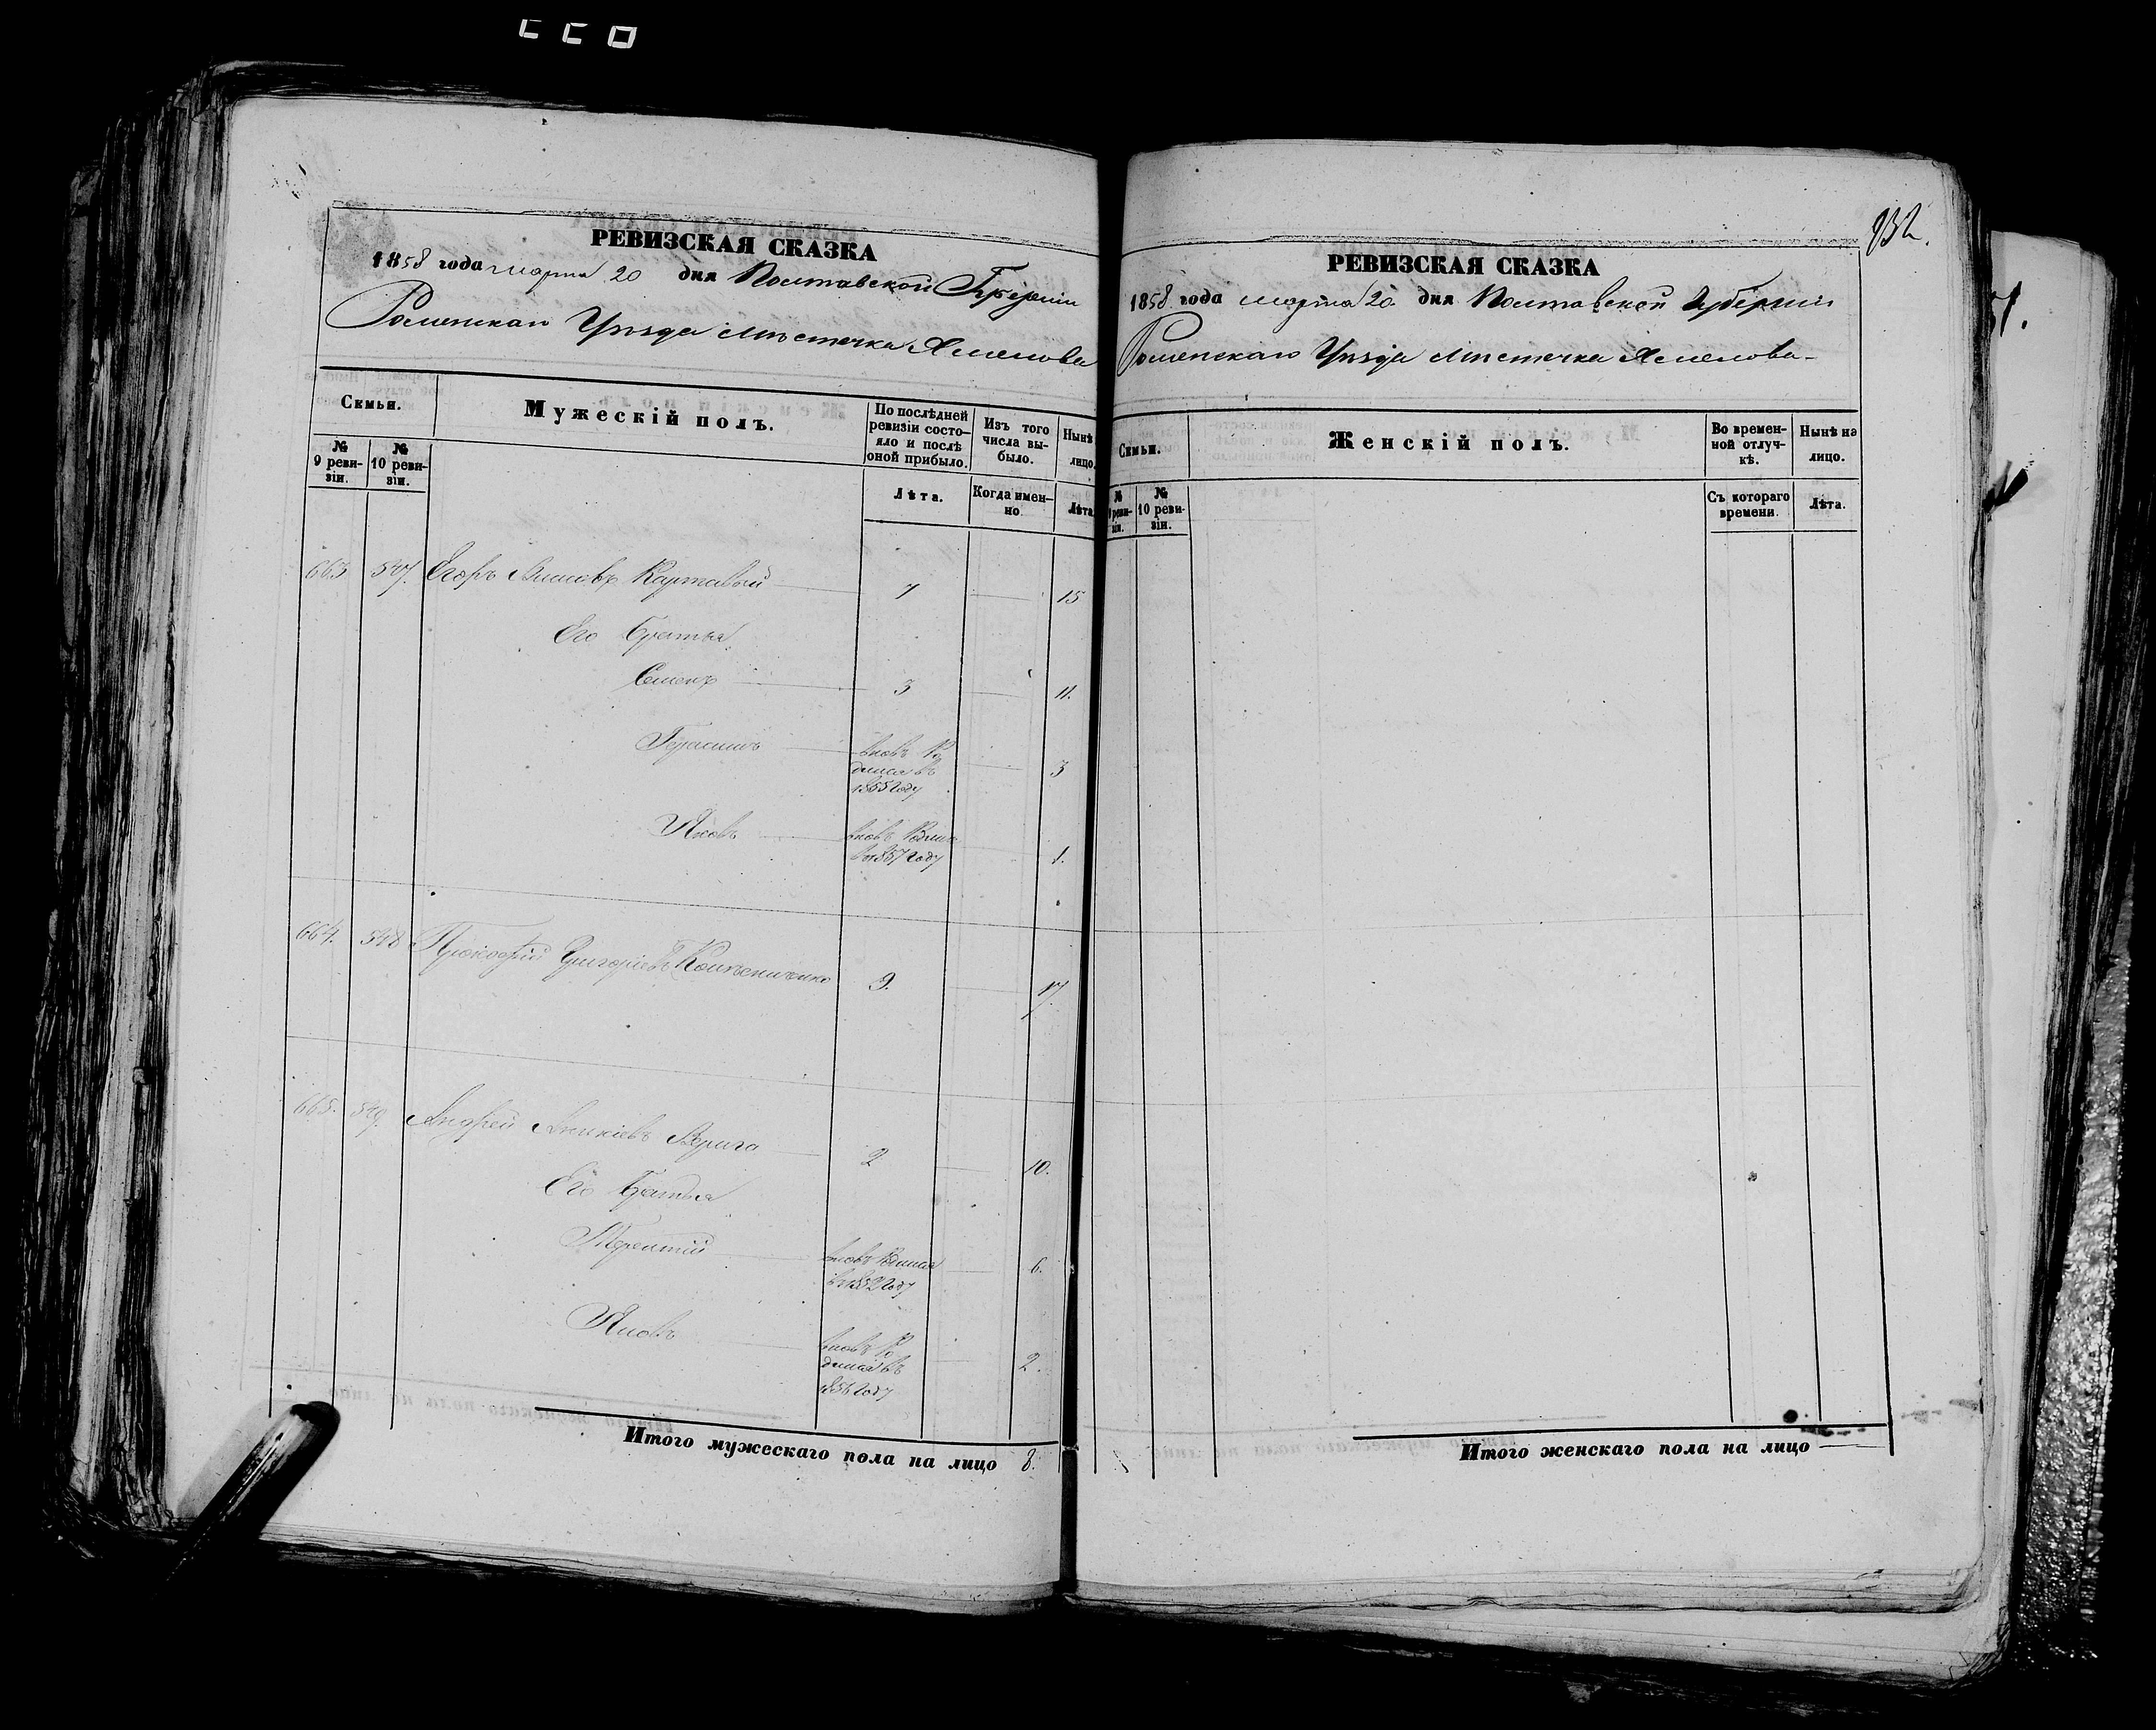 РЕВИЗСКАЯ СКАЗКА
1858 года марта 20 дня Полтавской Губерніи
Роменскаго Уѣзда Мѣстечка Хмелова
Семьи.
Мужескій полъ.
По послѣдней ревизіи состо-
яло и послѣ
оной прибыло.
Изъ того
числа вы-
было.
Нынѣ
лицо.
№
9 реви-
зіи.
№
10 реви-
зіи.
Лѣта.
Когда имен-
но
Лѣта
663 547. Егоръ Картавый 7 15
Его Братья
Семенъ 3 11.
Герасимъ вновь Ро
дился въ 3
1855 году
Яковъ вновь Родил
въ 1857 году 1.
664. 548 Прокофій Григоріевъ 9. 17.
665. 549. Андрей Аникіевъ Верига 2 10.
Его Братья
Терентій вновь Родился 6.
въ 1852 году
Яковъ вновь Ро
дился въ 2.
1856 году
Итого мужескаго пола на лицо 8.
832.
РЕВИЗСКАЯ СКАЗКА
1858 года марта 20 дня Полтавской Губерніи
Роменскаго Уѣзда Мѣстечка Хмелова
Семьи.
Женскій полъ.
Во времен-
ной отлуч-
кѣ.
Нынѣ на
лицо.
№
9 реви-
зіи.
№
10 реви-
зіи.
Съ котораго
времени.
Лѣта.
Итого женскаго пола на лицо
51.